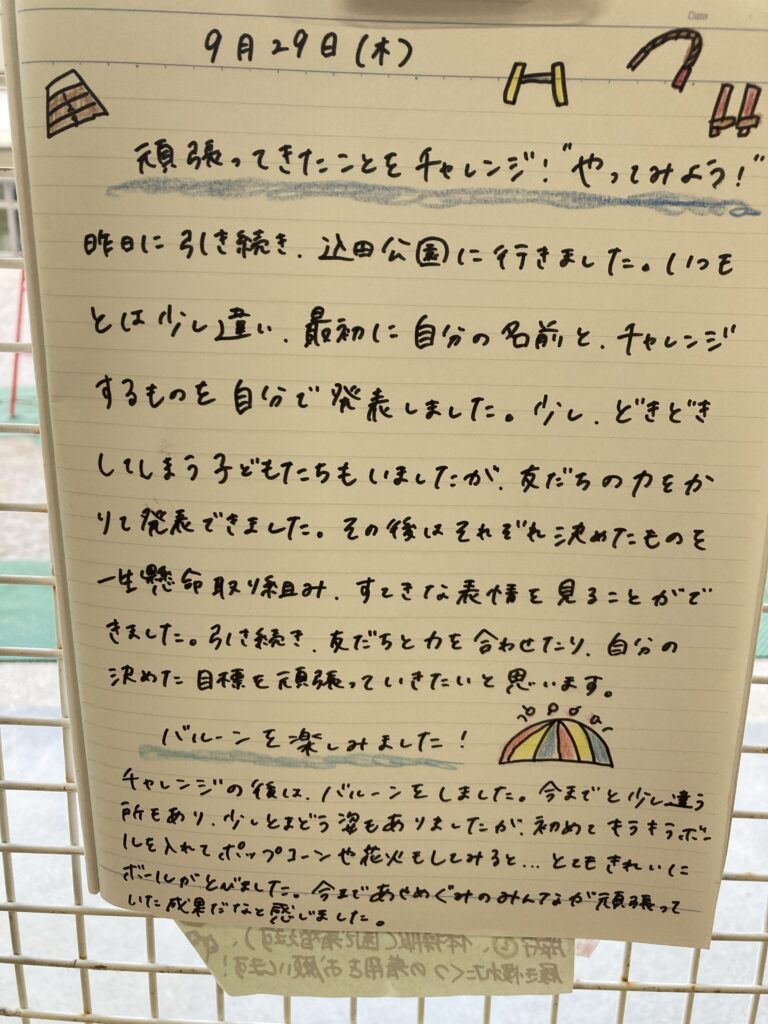 Date
9月29日(木)
頑張ってきたことをチャレンジ!"やってみよう!"
昨日に引き続き、辺田公園に行きました。いつも
とは少し違い、最初に自分の名前と、チャレンジ
するものを自分で発表しました。少し、どきどき
してしまう子どもたちもいましたが、友だちの力をか
りて発表できました。その後はそれぞれ決めたものを
一生懸命取り組み、すてきな表情を見ることがで
きました。引き続き、友だちと力を合わせたり、自分の
決めた目標を頑張っていきたいと思います。
バルーンを楽しみました!
チャレンジの後は、バルーンをしました。今までと少し違う
所もあり、少しとまどう姿もありましたが、初めてキラキラボー
ルを入れてポップコーンや花火もしてみると...とてもきれいに
ボールがとびました。今まであやめぐみのみんなが頑張って
いた成果だなと感じました。
履き慣れたくつの着用をお願いします!